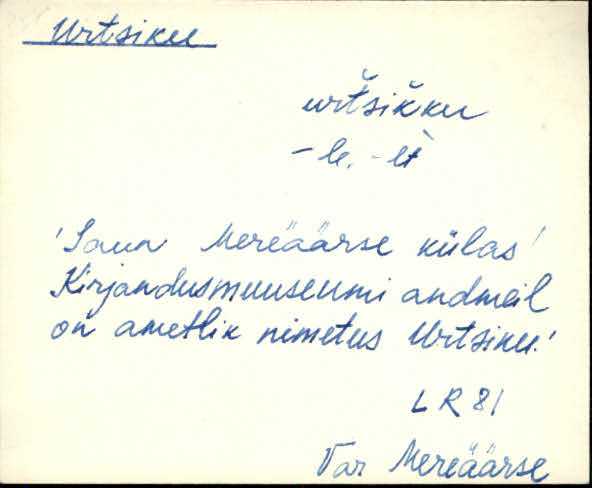 Urtsiku
urt̆sik̆ku
- le, - lt
'Saun Mereäärse külas'
Kirjandusmuuseumi andmeil
on ametlik nimetus Urtsiku!
LR 81
Var Mereäärse